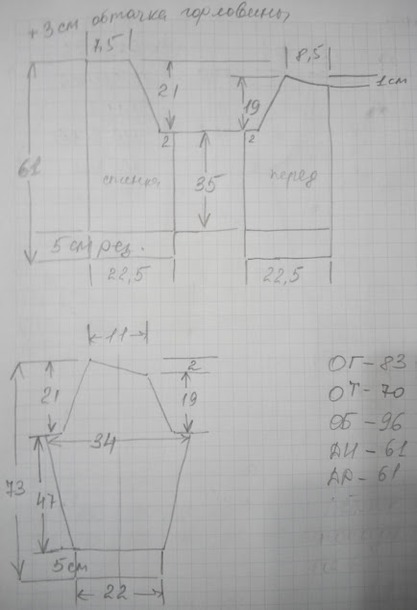 +3см обтачка горловины
7,5
8,5
1 см
21
19
2
2
61
спинка
35
перед
5 см рез.
22,5
22,5
11
2
21
19
34
73
47
5см
22
ОГ-83
ОТ-70
ОБ-96
ДИ-61
ДР-61